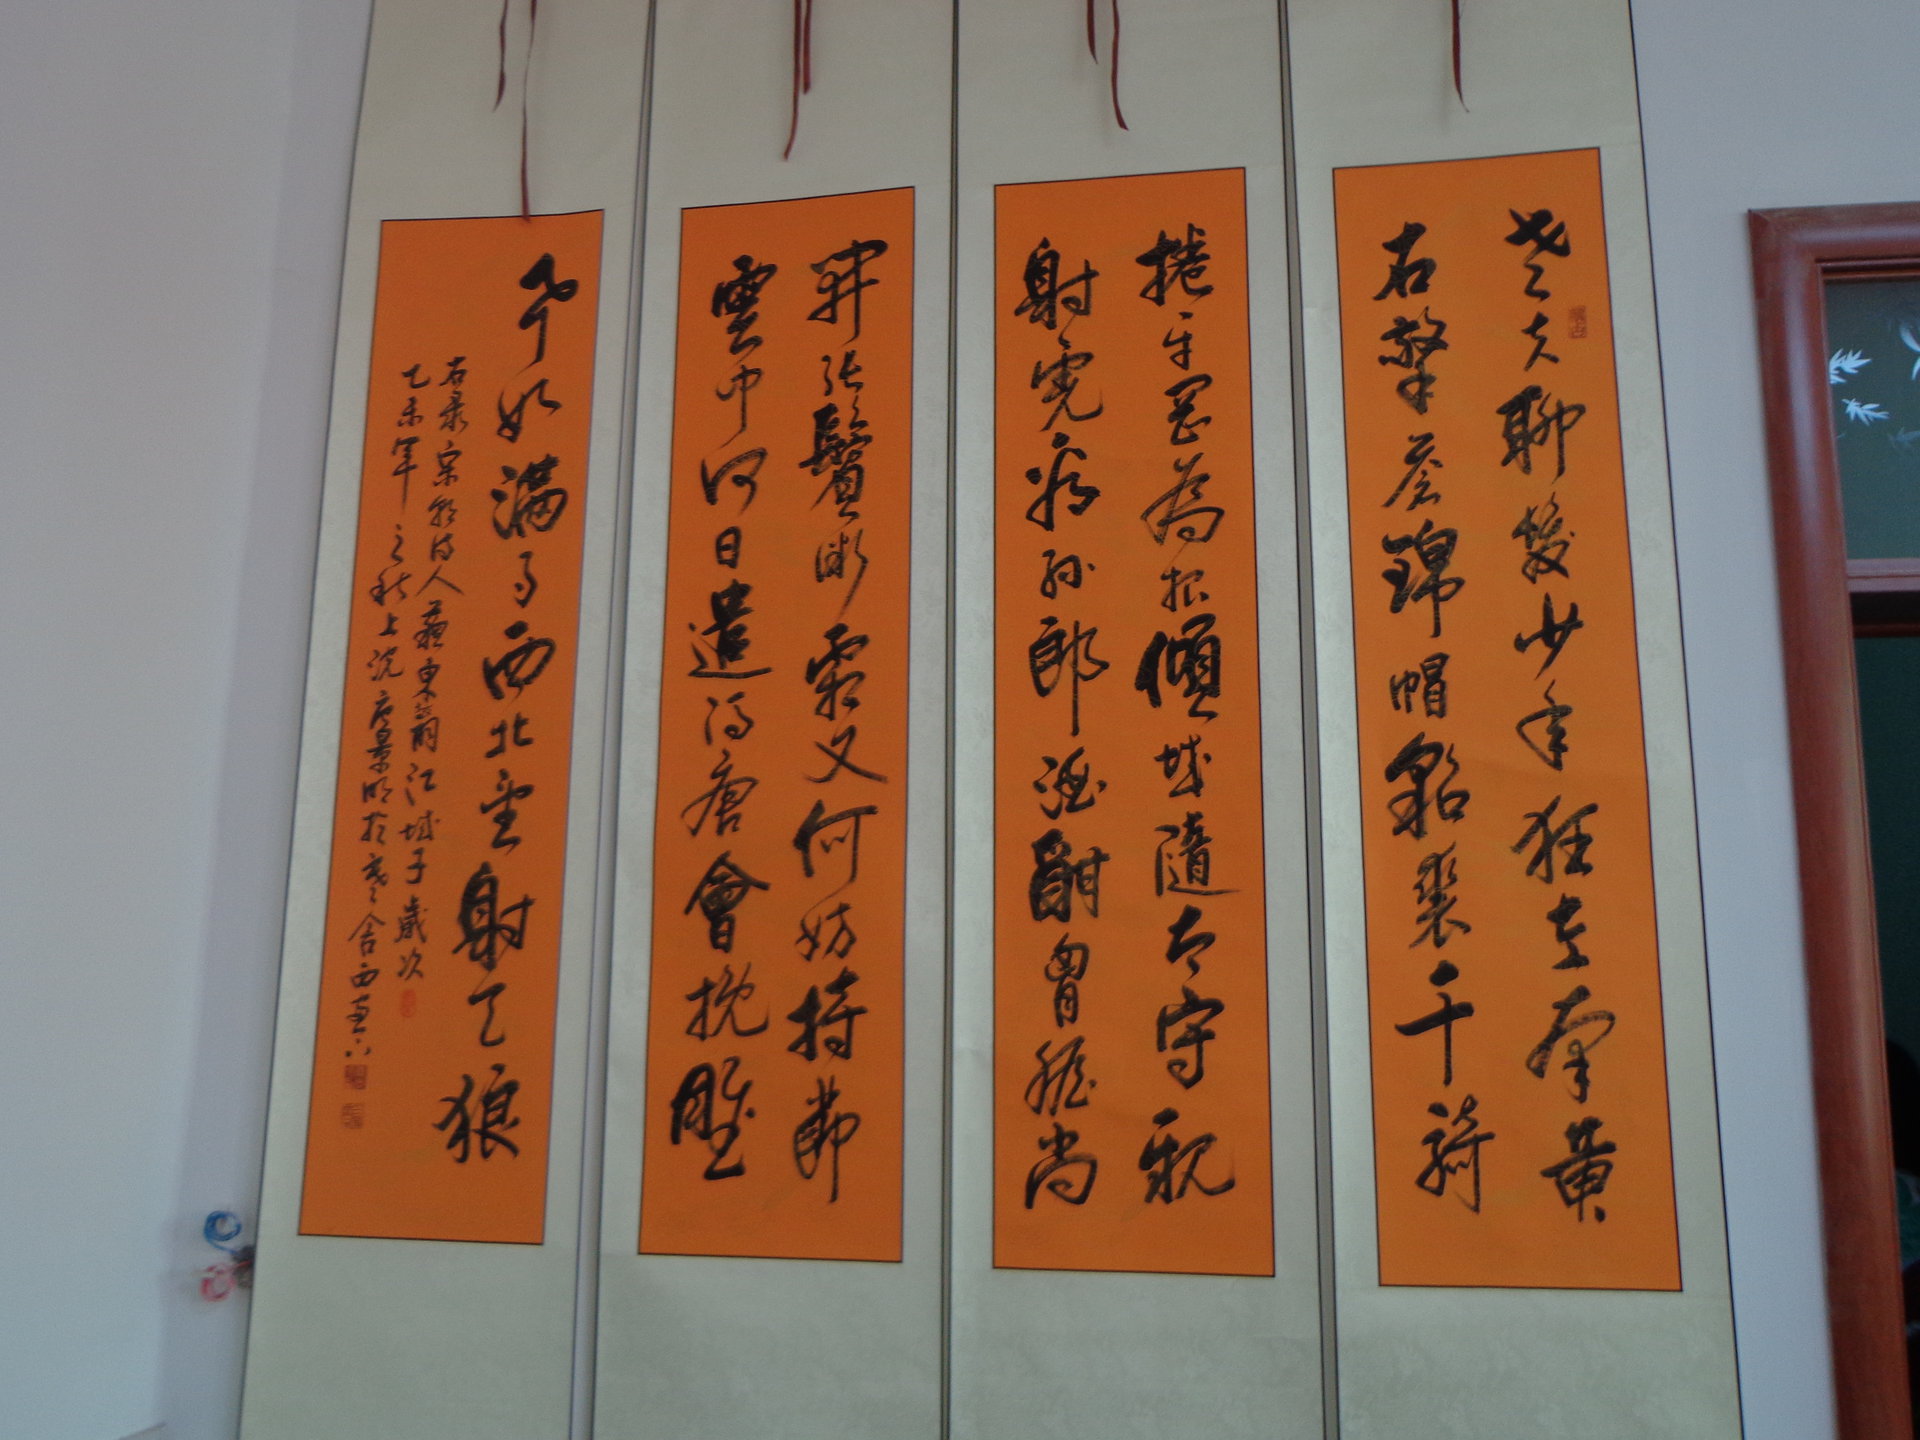 老夫聊發少年狂左牽黃
右擎蒼錦帽貂裘千騎
捲平岡為報傾城隨太守親
射虎看孫郎酒酣胷膽尚
開張鬢微霜又何妨持節
雲中何日遣馮唐會挽雕
弓如滿月西北望射天狼
右录宋朝诗人蘇東江城子歲次
乙未年之秋上浣景明於舍西